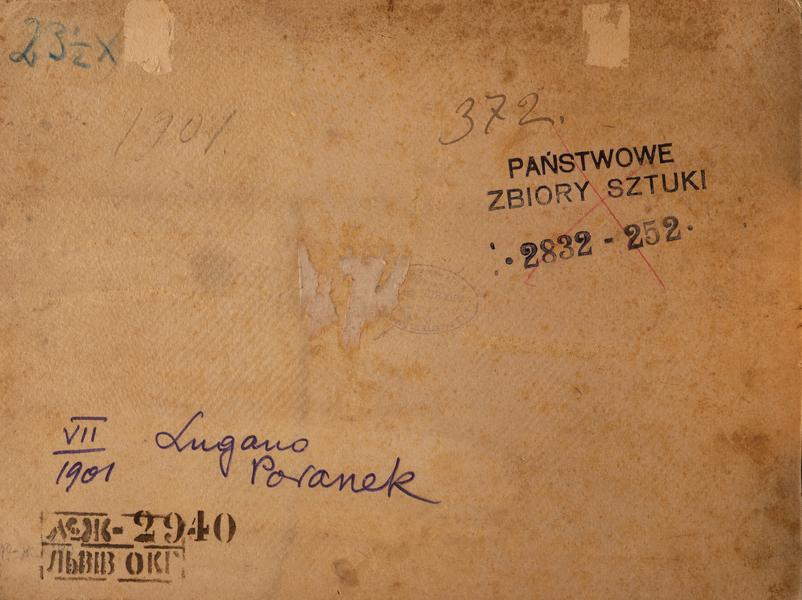 23½X
1901
372.
PAŃSTWOWE
ZBIORY SZTUKI
2832 - 252.
VII
1901
Lugano
Poranek
№Ж-2940
ЛЬВІВ ОКГ